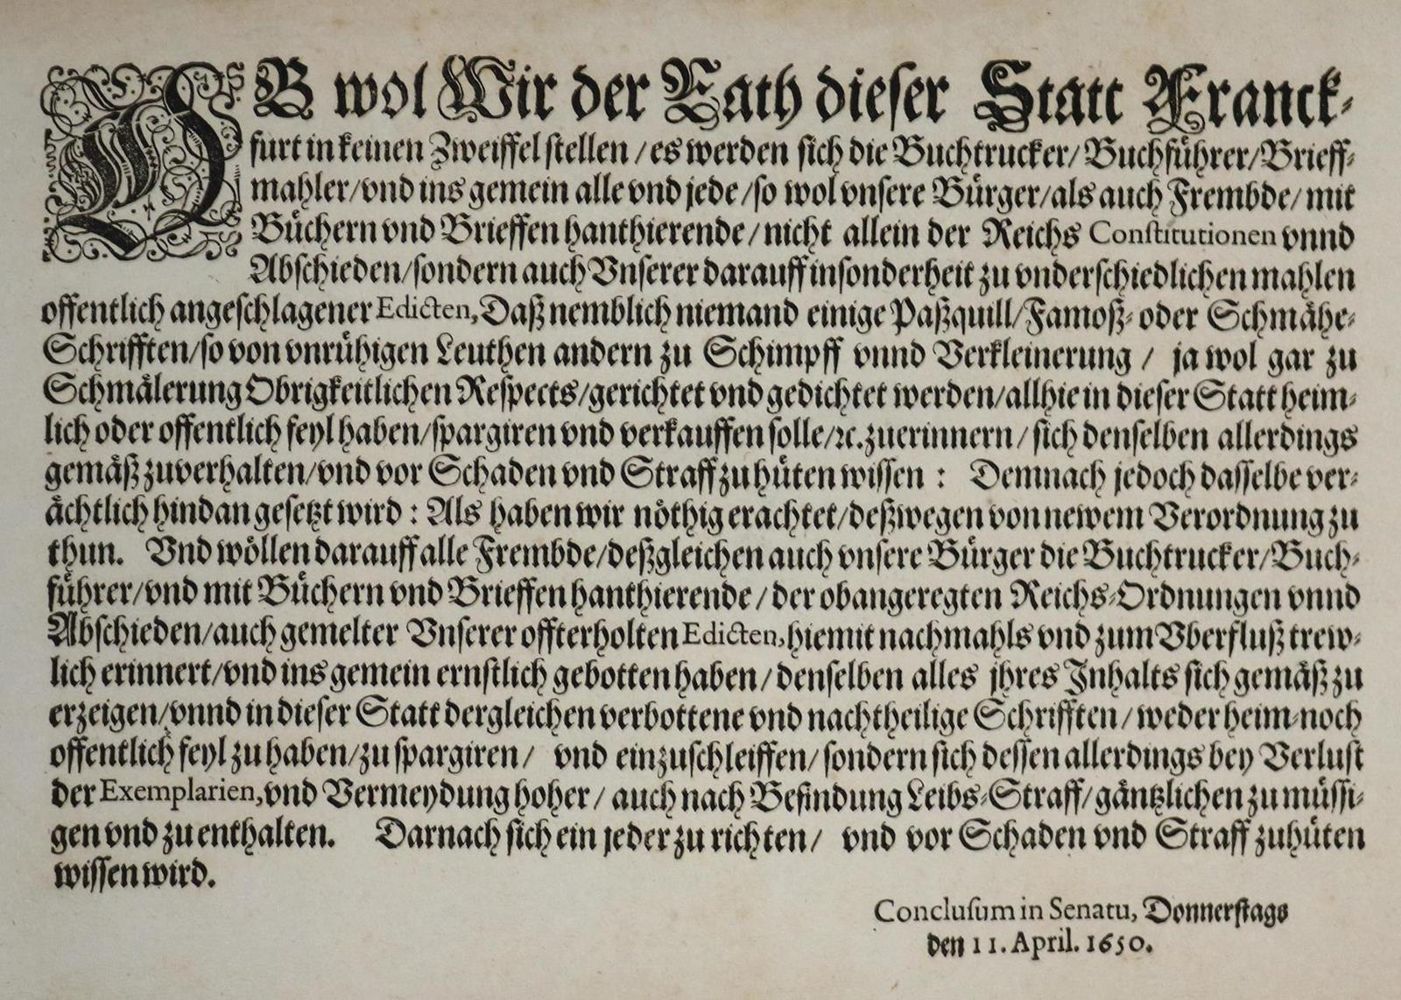 OB wol Wir der Rath dieser Statt Franck-
furt in keinen Zweiffel stellen / es werden sich die Buchtrucker / Buchführer / Brieff-
mahler / vnd ins gemein alle vnd jede / so wol vnsere Bürger / als auch Frembde / mit
Büchern vnd Brieffen hanthierende / nicht allein der Reichs Constitutionen vnnd
Abschieden / sondern auch Vnserer darauff insonderheit zu vnderschiedlichen mahlen
offentlich angeschlagener Edicten, Daß nemblich niemand einige Paßquill / Famoß- oder Schmähe-
Schrifften / so von vnrühigen Leuthen andern zu Schimpff vnnd Verkleinerung / ja wol gar zu
Schmälerung Obrigkeitlichen Respects / gerichtet vnd gedichtet werden / allhie in dieser Statt heim-
lich oder offentlich feyl haben / spargiren vnd verkauffen solle / ꝛc. zuerinnern / sich denselben allerdings
gemäß zuverhalten / vnd vor Schaden vnd Straff zu hüten wissen : Demnach jedoch dasselbe ver-
ächtlich hindan gesetzt wird : Als haben wir nöthig erachtet / deßwegen von newem Verordnung zu
thun. Vnd wöllen darauff alle Frembde / deßgleichen auch vnsere Bürger die Buchtrucker / Buch-
führer / vnd mit Büchern vnd Brieffen hanthierende / der obangeregten Reichs-Ordnungen vnnd
Abschieden / auch gemelter Vnserer offterholten Edicten, hiemit nachmahls vnd zum Vberfluß trew-
lich erinnert / vnd ins gemein ernstlich gebotten haben / denselben alles jhres Inhalts sich gemäß zu
erzeigen / vnnd in dieser Statt dergleichen verbottene vnd nachtheilige Schrifften / weder heim- noch
offentlich feyl zu haben / zu spargiren / vnd einzuschleiffen / sondern sich dessen allerdings bey Verlust
der Exemplarien, vnd Vermeydung hoher / auch nach Befindung Leibs-Straff / gäntzlichen zu müssi-
gen vnd zu enthalten. Darnach sich ein jeder zu richten / vnd vor Schaden vnd Straff zuhüten
wissen wird.
Conclusum in Senatu, Donnerstags
den 11. April. 1650.